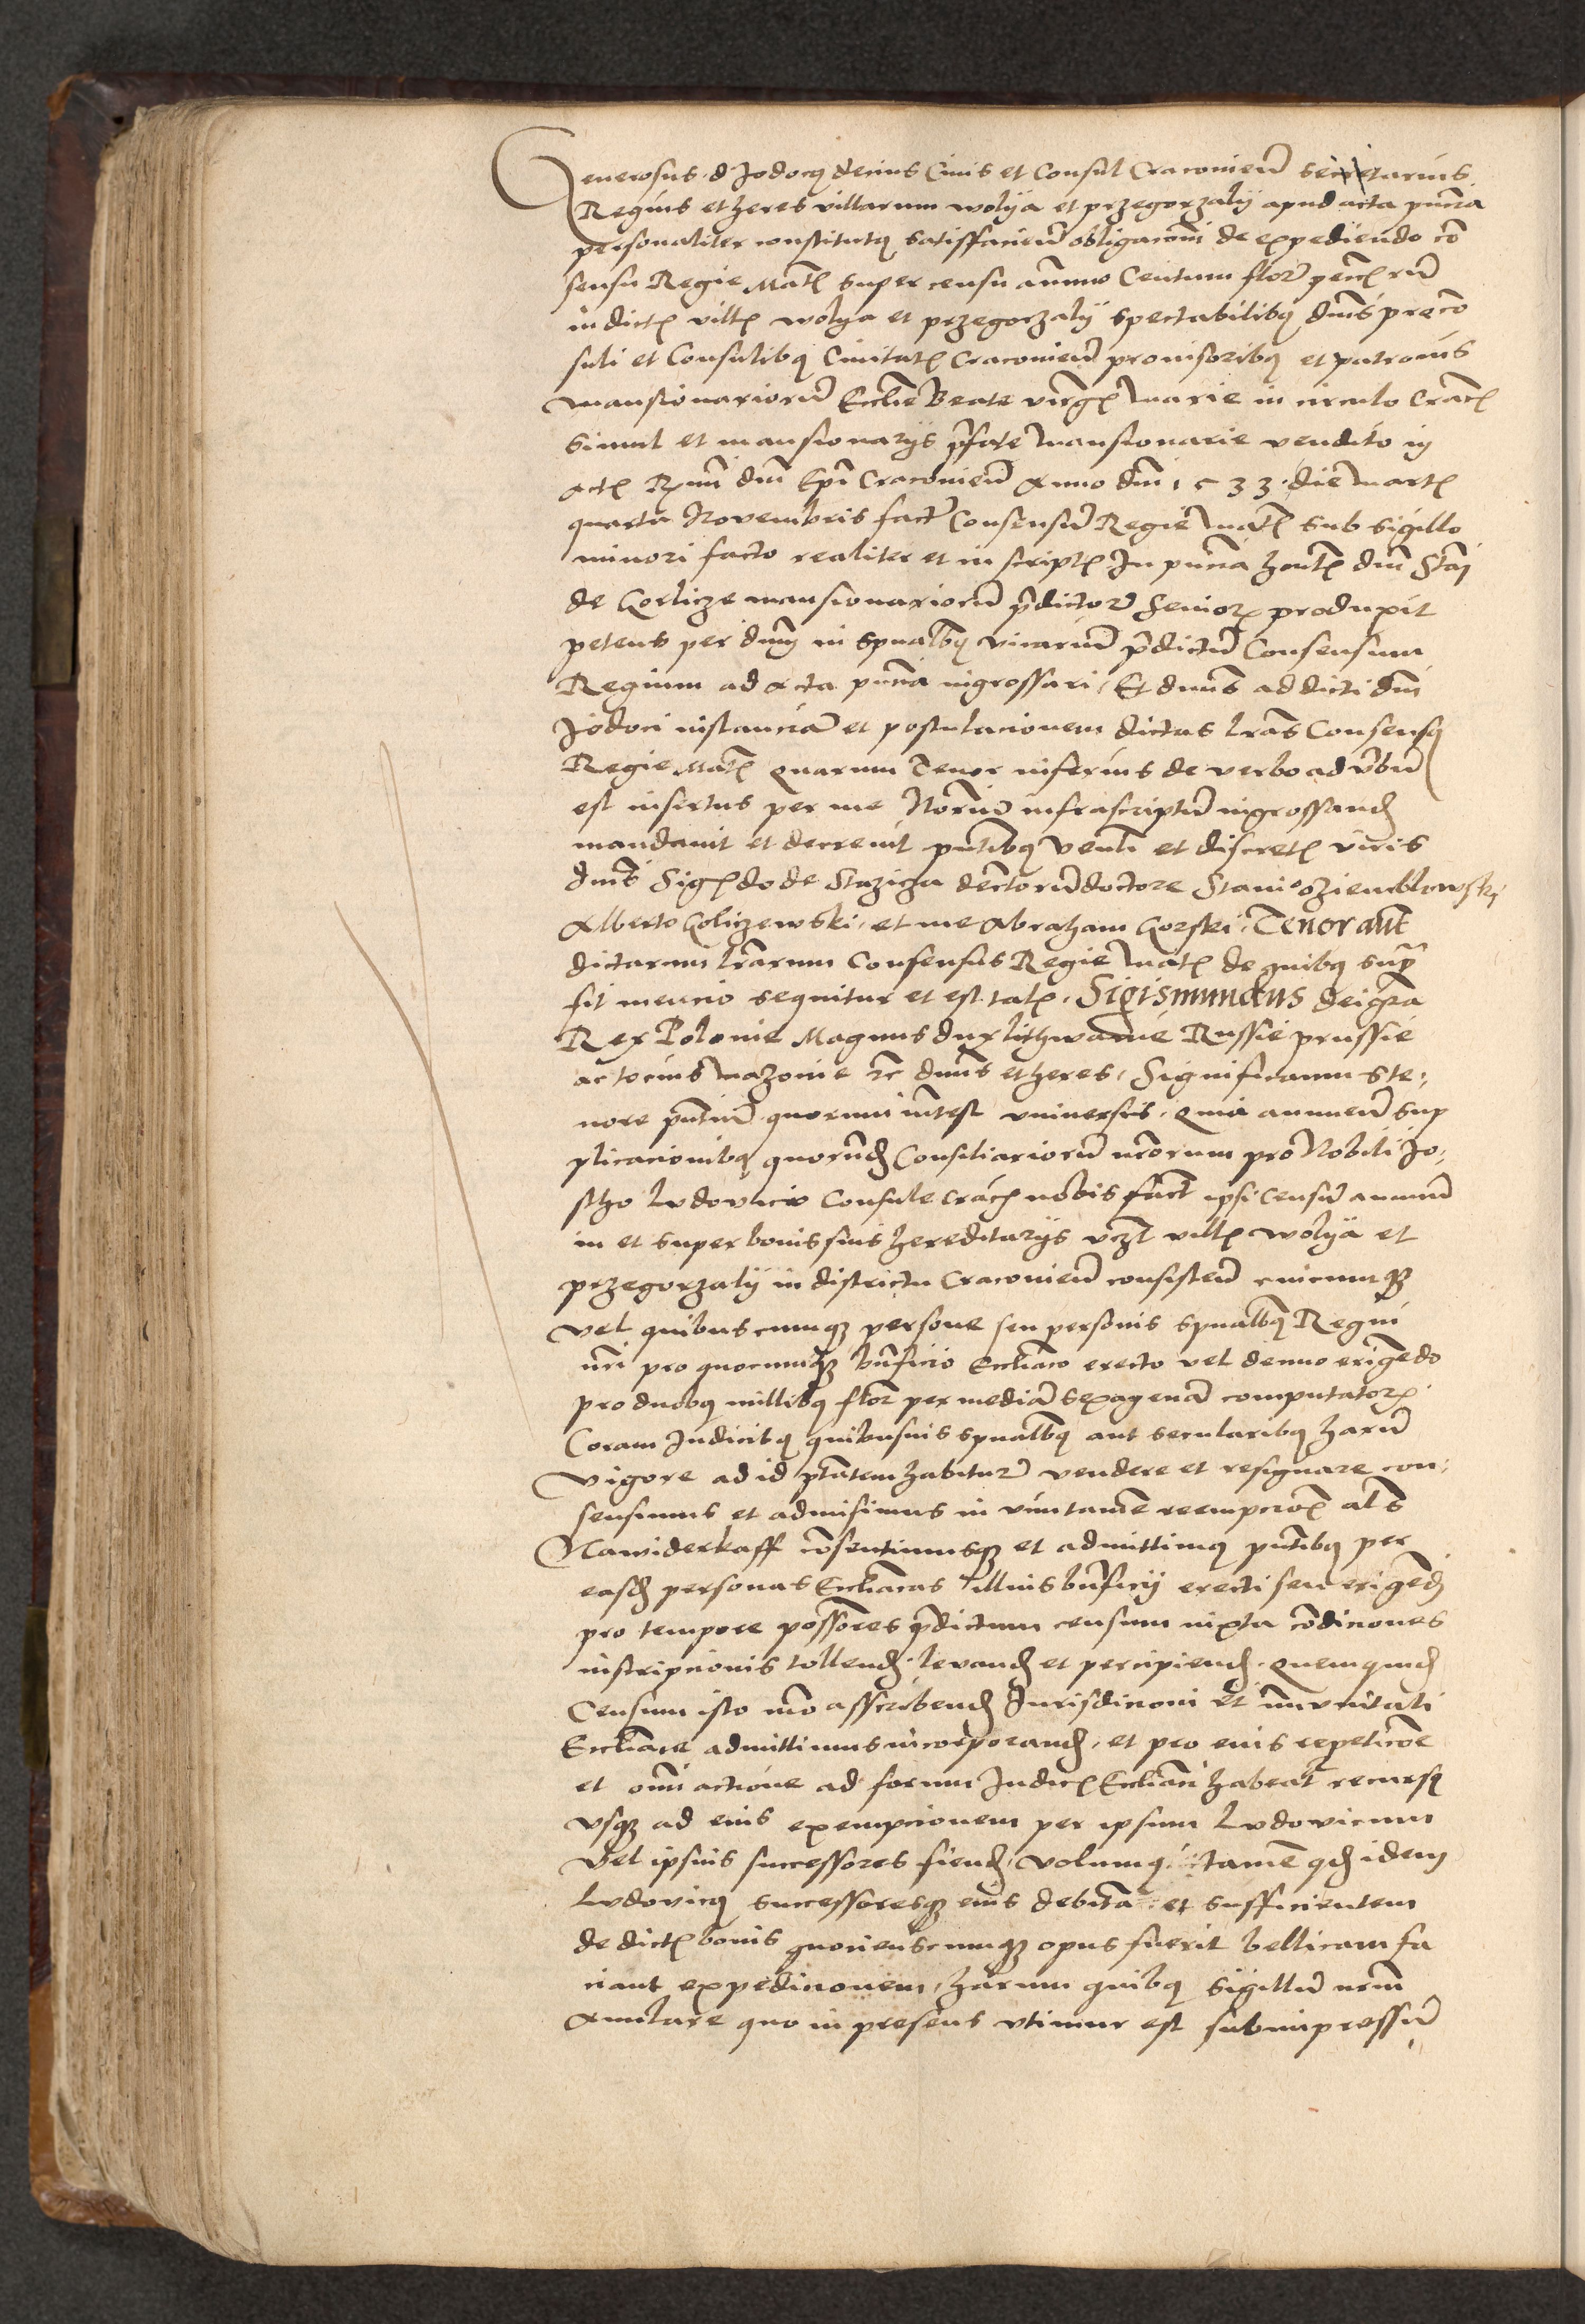 Generosus d Jodocus decius Civis et Consul Cracovien̄ secretarius
Regius et heres villarum wolya et przegorzaly apud acta pn̄cia
personaliter constitutus satisfacien̄ obligacōni de expediendo cō
sensu Regie Matis super censu annuo Centum flor̄ pecc̄ rum
in dictis villis wolya et przegorzaly spectabilibus dn̄is precō
suli et Consulibus Civitatis Cracovien̄ provisoribus et patronis
mansionariorū Ecclīe Beate virgīs Marie in circulo Crac̄
simul et mansionarys p̄fate Mansionarie vendito in
actis Rmi dn̄i Epī Cracovien̄ Anno dn̄i 1533 die Martis
quarta Novembris fact̄ Consensū Regie Matis sub sigillo
minori facto realiter et in scriptis In pn̄cia hon̄tis dn̄i Stāi
de Gorlicze mansionariorū p̄dictor̄ Senioris produxit
petens per dn̄um in spūalibus vicariū p̄dictū Consensum
Regium ad Acta pn̄cia ingrossari, Et dn̄us ad dicti dn̄i
Jodoci instanciā et postulacionem dictas lr̄as Consensus
Regie Matis Quarum Tenor inferius de verbo ad v̄bū
est insertus per me Notariū infrascriptū ingrossand̄
mandavit et decrevit pn̄tibus ven̄li et discretis viris
dn̄is Sigis̄do de Staziza decretorū doctore Stanis° Oziemblowski
Alberto Goliczewski, et me Abraham Gorski, Tenor aūt
dictarum lr̄arum Consensus Regie Matis de quibus supra
fit mencio sequitur et est talis. Sigismundus dei gr̄a
Rex Polonie Magnus dux lithwanie Russie prussie
ac tocius Mazovie zc̄ dn̄us et heres, Significamus te-
nore pn̄tiū quorum int̄est universis, Quia annuen̄ sup
plicacionibus quorūd̄ Consiliariorū nr̄orum pro Nobili Jo-
stho lvdovico Consule Crac̄ nobis fact̄ ipsi Censū annuū
in et super bonis suis hereditarys vcz̄ villis wolya et
przegorzaly in districtu Cracovien̄ consisten̄ cuicumque
vel quibuscumque persone seu personis spūalibus Regni
nr̄i pro quocumque bn̄ficio Ecclīaco erecto vel denuo erigēdo
pro duobus millibus flor̄ per mediā sexagenā computatoris
Coram Judicibus quibusvis spūalibus aut secularibus harū
vigore ad id p̄tatem habitur̄ vendere et resignare con-
sensimus et admisimus in vim tamē reempcionis al̄s
Nawiderkaff cōsentimusque et admittimus pn̄tibus per
easd̄ personas Ecclīacas illius bn̄ficij erecti seu erigēdi
pro tempore poss̄ores p̄dictum censum iuxta cōdiciones
inscripcionis tollend̄ levand̄ et percipiend̄. Quemquid̄
Censum isto mō asscribend̄ Jurisdicioni et immunitati
Ecclīace admittimus incorporand̄, et pro eius repeticōe
et om̄i actione ad forum Judicis Ecclīaci habeat̄ recursus
vsque ad eius exempcionem per ipsum lvdovicum
vel ipsius successores fiend̄, volumus tamē qd̄ idem
lvdovicus successoresque eius debitā et sufficientem
de dictis bonis quocienscumque opus fuerit bellicam fa
ciant expedicionem, harum quibus sigillū nr̄m
Anulare quo in presens vtimur est subimpressū